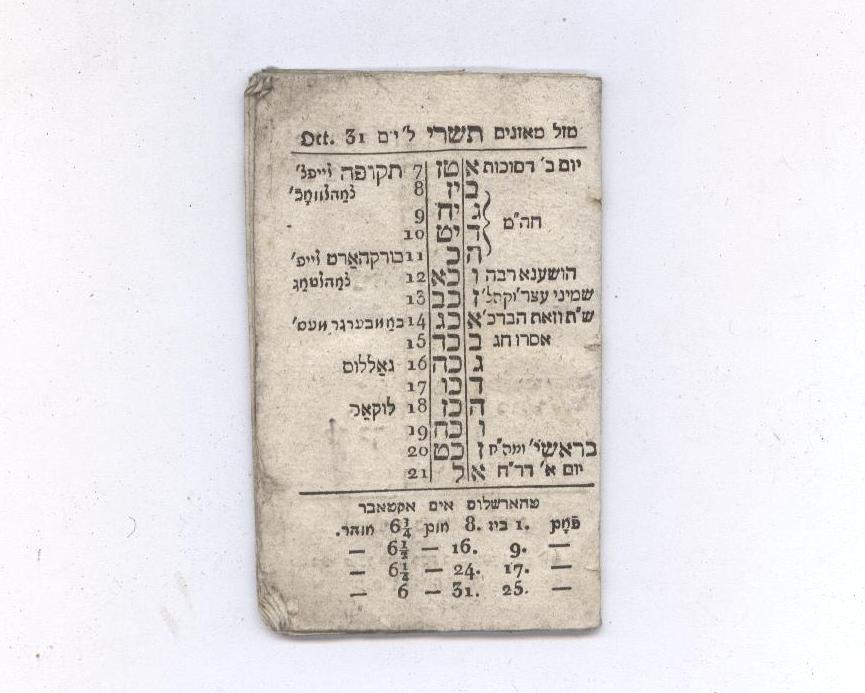 מזל מאזנים תשרי ל׳ ים Oct. 31
יום ב׳ דסוכות א טז 7 תקופה
ב יז 8
חה״מ ג יח 9
ד יט 10
ה כ 11 בורקהאַרט
הושענא רבה ו כא 12
שמיני עצר׳ וקהל׳ ז כב 13
ש״ת וזאת הברכ׳ א כג 14 במבערגר מעס׳
אסרו חג ב כד 15
ג כה 16 גאַללוס
ד כו 17
ה כז 18 לוקאַס
ו כח 19
בראשי׳ ומה״ח ז כט 20
יום א׳ דר״ח א ל 21
טהארשלוס אים אקטאבר
פֿאָן 1. ביז 8. אום 6¼ אוהר.
— 9. 16. — 6½ —
— 17. 24. — 6¼ —
— 25. 31. — 6 —